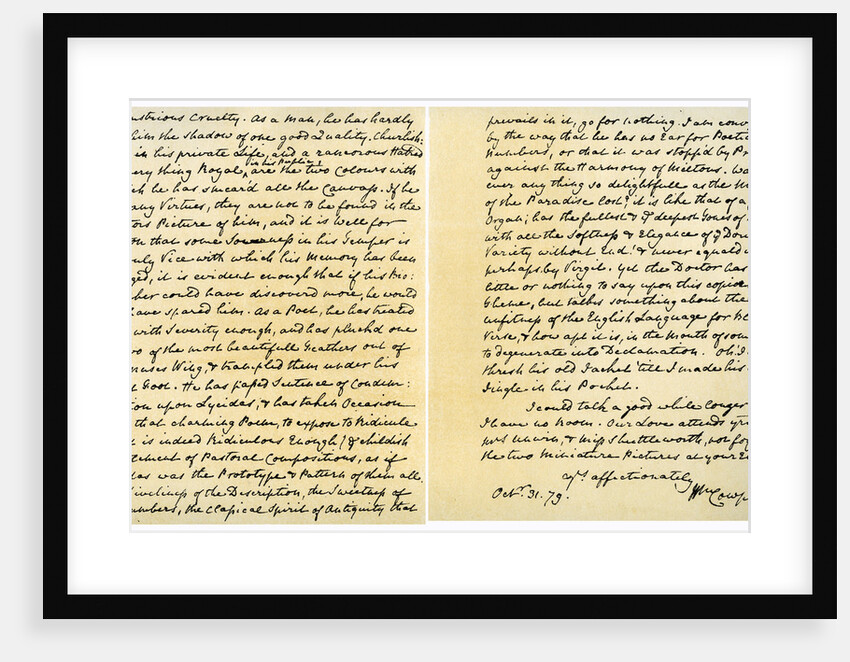 ustrious Cruelty. As a Man, he has hardly
him the shadow of one good Quality. Churlish:
in his private Life, and a rancorous Hatred
ery thing Royal, in his Public, are the two Colours with
ch he has smear'd all the Canvass. If he
any Virtues, they are not to be found in the
tors Picture of him, and it is well for
n that some Sourness in his Temper is
nly Vice with which his Memory has been
ged, it is evident enough that if his Bio:
her could have discoverd more, he would
ave spared him. As a Poet, he has treated
with Severity enough, and has pluckd one
wo of the most beautifull Feathers out of
uses Wing, & trampled them under his
t Foot. He has passed Sentence of Condem:
ion upon Lycidas, & has taken Occasion
that charming Poem, to expose to Ridicule
h is indeed Ridiculous Enough) ye childish
tlement of Pastoral Compositions, as if
das was the Prototype & Pattern of them all.
Liveliness of the Description, the Sweetness of
umbers, the Classical Spirit of Antiquity that
prevails in it, go for nothing. I am conv
by the way that he has no Ear for Poetic
Numbers, or that it was stopp'd by Pr
against the Harmony of Miltons. Wa
ever any thing so delightfull as the M
of the Paradise Lost? it is like that of a
Organ; has the fullest & ye deepest Tones of
with all the Softness & Elegance of ye Dor
Variety without End! & never equald u
perhaps by Virgil. Yet the Doctor has
little or nothing to say upon this copio
theme, but talks something about the
unfitness of the English Language for Bl
Verse, & how apt it is, in the Mouth of som
to degenerate into Declamation. Oh! I
thresh his old Jacket 'till I made his
Jingle in his Pocket.
I could talk a good while longer
I have no Room. Our Love attends yrs
Mrs Unwin, & Miss Shuttleworth, not fo
the two Miniature Pictures at your E
Yrs affectionately
Wm Cowp
Octr. 31. 79.